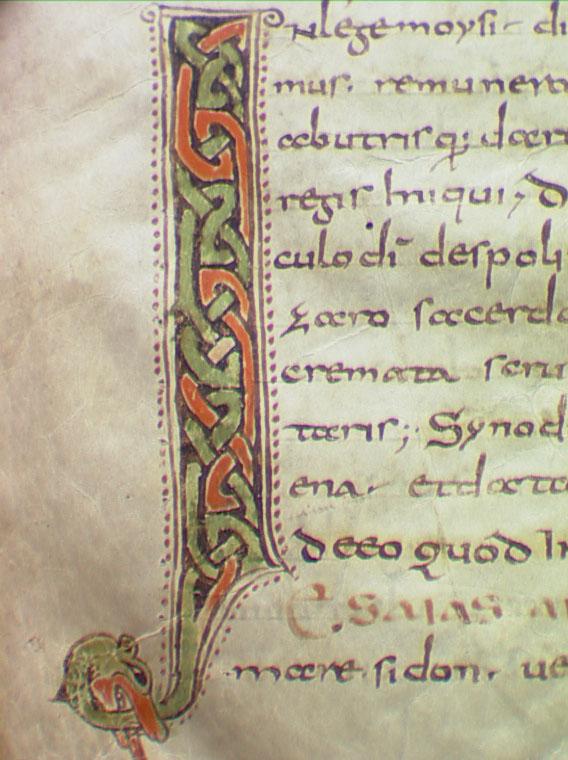 INlege moysi di
mus. remunera
abutrisq; dcer
regis Iniqui, d
culo di despoli
zaro sacerdo
cremata scru
taris; Synod
ena et dat
deeo quod In
ESAIAS
mare sidon. ue